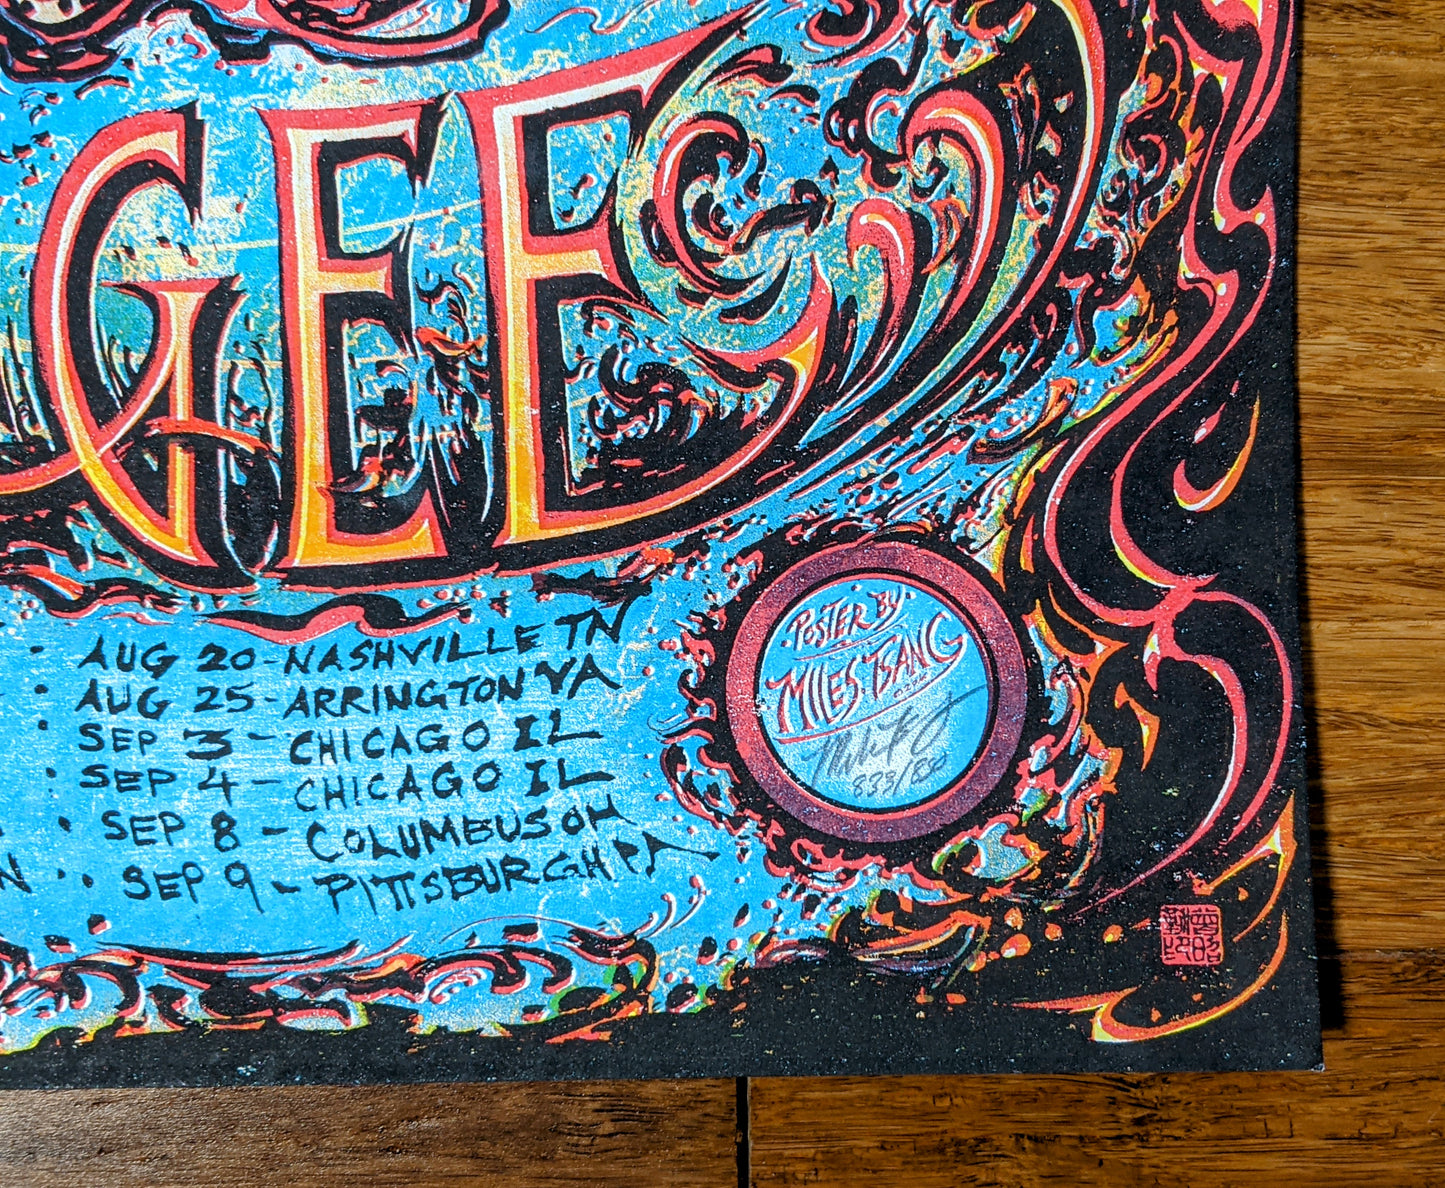 GEE
AUG 20 - NASHVILLE TN
AUG 25 - ARRINGTON VA
SEP 3 - CHICAGO IL
SEP 4 - CHICAGO IL
SEP 8 - COLUMBUS OH
N · SEP 9 - PITTSBURGH PA
·POSTER BY·
MILES TSANG
833/850